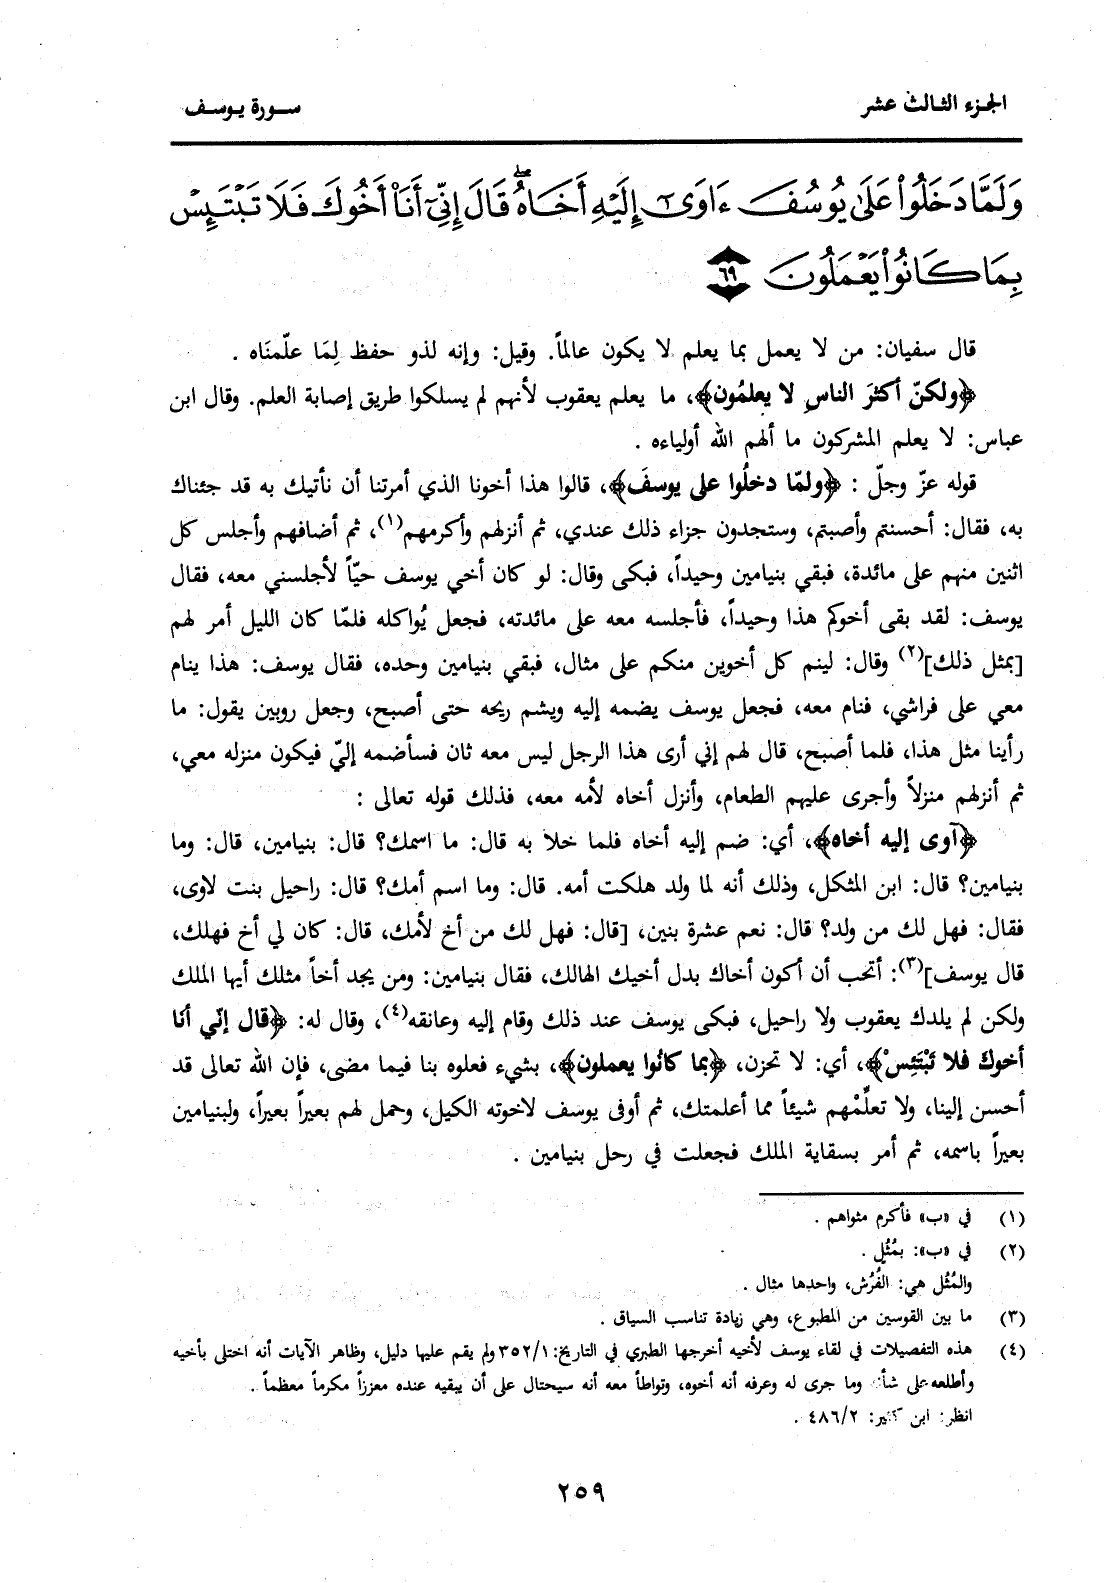 الجزء الثالث عشر
سورة يوسف
وَلَمَّا دَخَلُوا۟ عَلَىٰ يُوسُفَ ءَاوَىٰٓ إِلَيْهِ أَخَاهُ ۖ قَالَ إِنِّىٓ أَنَا۠ أَخُوكَ فَلَا تَبْتَئِسْ
بِمَا كَانُوا۟ يَعْمَلُونَ ٦٩
قال سفيان: من لا يعمل بما يعلم لا يكون عالماً. وقيل: وإنه لذو حفظ لِمَا علّمنَاه .
﴿ولكنّ أكثرَ الناسِ لا يعلمُون﴾، ما يعلم يعقوب لأنهم لم يسلكوا طريق إصابة العلم. وقال ابن
عباس: لا يعلم المشركون ما ألهم الله أولياءه .
قوله عزّ وجلّ : ﴿ولمّا دخلُوا على يوسفَ﴾، قالوا هذا أخونا الذي أمرتنا أن نأتيك به قد جئناك
به، فقال: أحسنتم وأصبتم، وستجدون جزاء ذلك عندي، ثم أنزلهم وأكرمهم(١)، ثم أضافهم وأجلس كل
اثنين منهم على مائدة، فبقي بنيامين وحيداً، فبكى وقال: لو كان أخي يوسف حيّاً لأجلسني معه، فقال
يوسف: لقد بقى أخوكم هذا وحيداً، فأجلسه معه على مائدته، فجعل يُواكله فلمّا كان الليل أمر لهم
[بمثل ذلك](٢) وقال: لينم كل أخوين منكم على مثال، فبقي بنيامين وحده، فقال يوسف: هذا ينام
معي على فراشي، فنام معه، فجعل يوسف يضمه إليه ويشم ريحه حتى أصبح، وجعل روبين يقول: ما
رأينا مثل هذا، فلما أصبح، قال لهم إني أرى هذا الرجل ليس معه ثان فسأضمه إليّ فيكون منزله معي،
ثم أنزلهم منزلاً وأجرى عليهم الطعام، وأنزل أخاه لأمه معه، فذلك قوله تعالى :
﴿آوى إليه أخاه﴾، أي: ضم إليه أخاه فلما خلا به قال: ما اسمك؟ قال: بنيامين، قال: وما
بنيامين؟ قال: ابن المثكل، وذلك أنه لما ولد هلكت أمه. قال: وما اسم أمك؟ قال: راحيل بنت لاوى،
فقال: فهل لك من ولد؟ قال: نعم عشرة بنين، [قال: فهل لك من أخ لأمك، قال: كان لي أخ فهلك،
قال يوسف](٣): أتحب أن أكون أخاك بدل أخيك الهالك، فقال بنيامين: ومن يجد أخاً مثلك أيها الملك
ولكن لم يلدك يعقوب ولا راحيل، فبكى يوسف عند ذلك وقام إليه وعانقه(٤)، وقال له: ﴿قال إنّي أنا
أخوكَ فلا تَبْتَئِسْ﴾، أي: لا تحزن، ﴿بما كانُوا يعملون﴾، بشيء فعلوه بنا فيما مضى، فإن الله تعالى قد
أحسن إلينا، ولا تعلِّمْهم شيئاً مما أعلمتك، ثم أوفى يوسف لاخوته الكيل، وحمل لهم بعيراً بعيراً، ولبنيامين
بعيراً باسمه، ثم أمر بسقاية الملك فجعلت في رحل بنيامين .
(١) في «ب» فأكرم مثواهم .
(٢) في «ب»: بمُثُلٍ .
والمُثُل هي: الفُرُش، واحدها مثال .
(٣) ما بين القوسين من المطبوع، وهي زيادة تناسب السياق .
(٤) هذه التفصيلات في لقاء يوسف لأخيه أخرجها الطبري في التاريخ: ٣٥٢/١ ولم يقم عليها دليل، وظاهر الآيات أنه اختلى بأخيه
وأطلعه على شأنه وما جرى له وعرفه أنه أخوه، وتواطأ معه أنه سيحتال على أن يبقيه عنده معززاً مكرماً معظماً .
انظر: ابن كثير: ٤٨٦/٢ .
٢٥٩